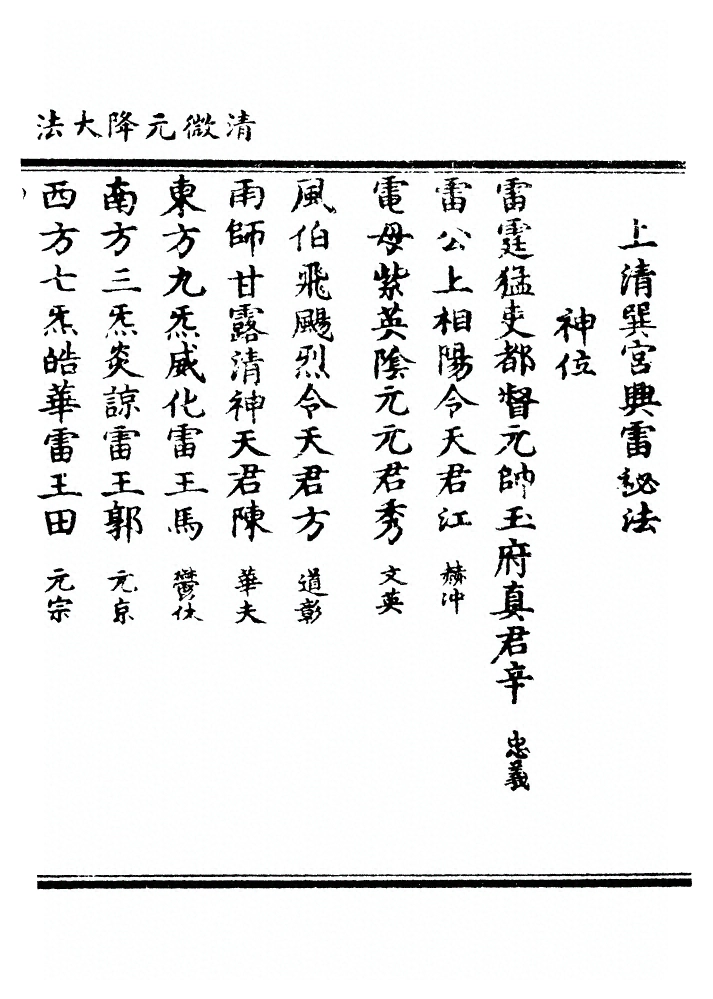 清微元降大法
上清巽宮興雷祕法
神位
雷霆猛吏都督元帥玉府真君辛 忠義
雷公上相陽令天君江 赫冲
電母紫英陰元元君秀 文英
風伯飛颺烈令天君方 道彰
雨師甘露清神天君陳 華夫
東方九炁威化雷王馬 鬱佅
南方三炁炎諒雷王郭 元京
西方七炁皓華雷王田 元宗